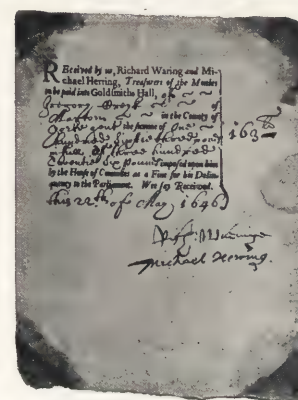 REceived by us, Richard Waring and Mi-
chael Herring, Treasurers of the Monies
to be paid into Goldsmiths Hall, of ~ ~
Gregory ~ ~ ~ of
~ ~ in the County of
the summe of One ~
hundred sixtie three pounds 163ˡⁱ
in full of three hundred
pounds imposed upon him
by the House of Commons as a Fine for his Delin-
quency to the Parliament. We say Received.
this 22ᵗʰ of May 1646
Ric: Waringe
Michael Herring.